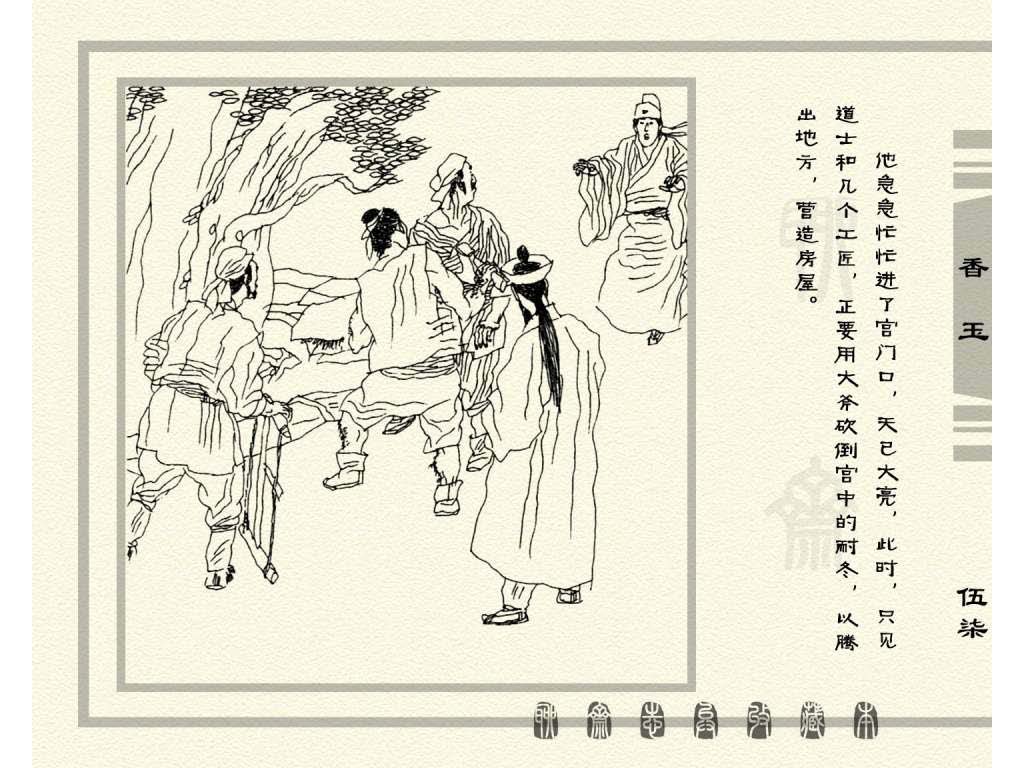 他急急忙忙进了宫门口，天已大亮，此时，只见
道士和几个工匠，正要用大斧砍倒宫中的耐冬，以腾
出地方，营造房屋。
香玉
伍柒
聊斋志异珍藏本